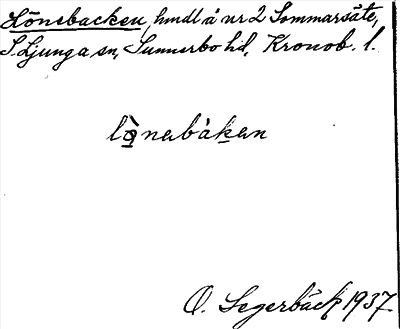 Lönebacken, hmdl å nr 2 Sommarsäte,
S. Ljunga sn, Sunnerbo hd, Kronob. l.
lǫ̀nabàkan
O. Segerbäck 1937.